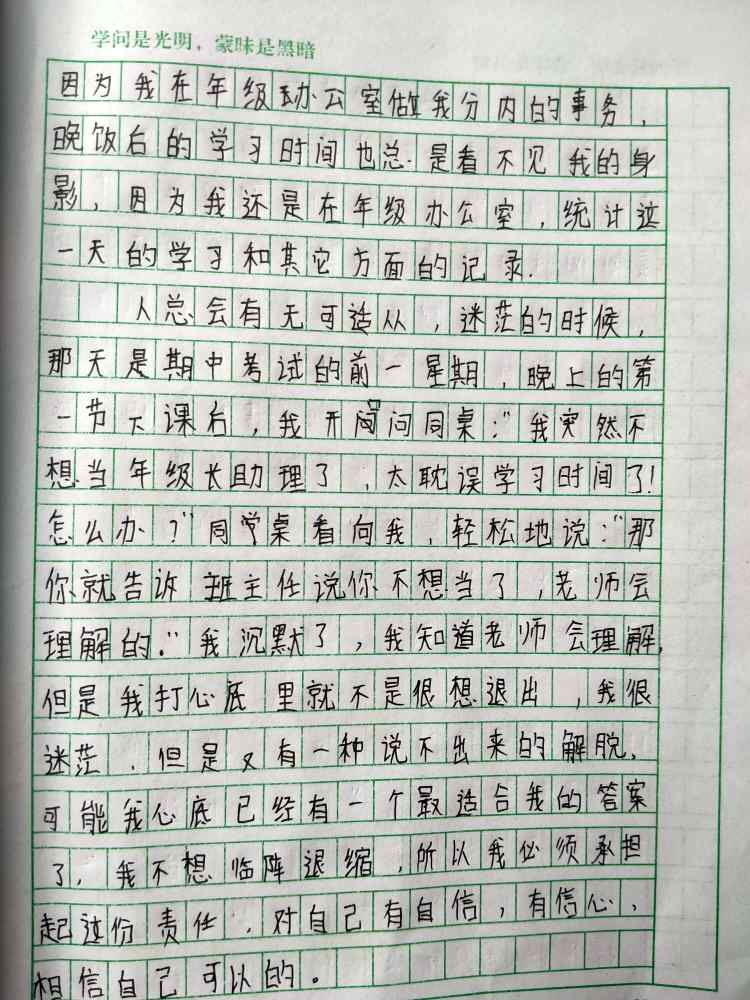 学问是光明，蒙昧是黑暗
因为我在年级办公室做我分内的事务，
晚饭后的学习时间也总是看不见我的身
影，因为我还是在年级办公室，统计这
一天的学习和其它方面的记录.
人总会有无可适从，迷茫的时候，
那天是期中考试的前一星期，晚上的第
一节下课后，我开口问同桌："我突然不
想当年级长助理了，太耽误学习时间了!
怎么办？"同学桌看向我，轻松地说："那
你就告诉班主任说你不想当了，老师会
理解的."我沉默了，我知道老师会理解，
但是我打心底里就不是很想退出，我很
迷茫，但是又有一种说不出来的解脱，
可能我心底已经有一个最适合我的答案
了，我不想临阵退缩，所以我必须承担
起这份责任，对自己有自信，有信心，
相信自己可以的。